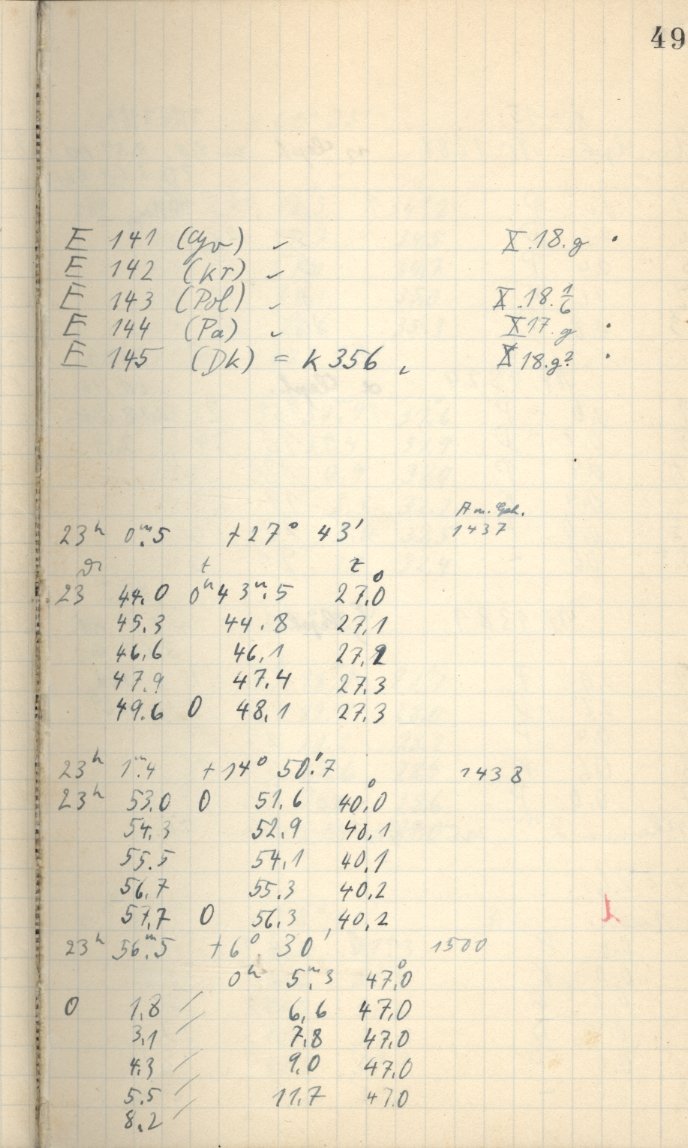 49
E 141 (Cyr) ✓ X.18.g •
E 142 (Kr) ✓
E 143 (Pol) ✓ X.18.1/6
E 144 (Pa) ✓ X17.g •
E 145 (Dk) = K 356 , X18.g² •
Am. Eph.
23ʰ 0ᵐ.5 +27° 43' 1437
t z
23 44.0 0ʰ43ᵐ.5 27°.0
45.3 44.8 27.1
46.6 46.1 27.2
47.9 47.4 27.3
49.6 0 48.1 27.3
23ʰ 1ᵐ.4 +14° 50'.7 1438
23ʰ 53.0 0 51.6 40°.0
54.3 52.9 40.1
55.5 54.1 40.1
56.7 55.3 40.2
57.7 0 56.3 40.2
23ʰ 56ᵐ.5 +6° 30' 1500
0ʰ 5ᵐ.3 47°.0
0 1.8 6.6 47.0
3.1 7.8 47.0
4.3 9.0 47.0
5.5 11.7 47.0
8.2